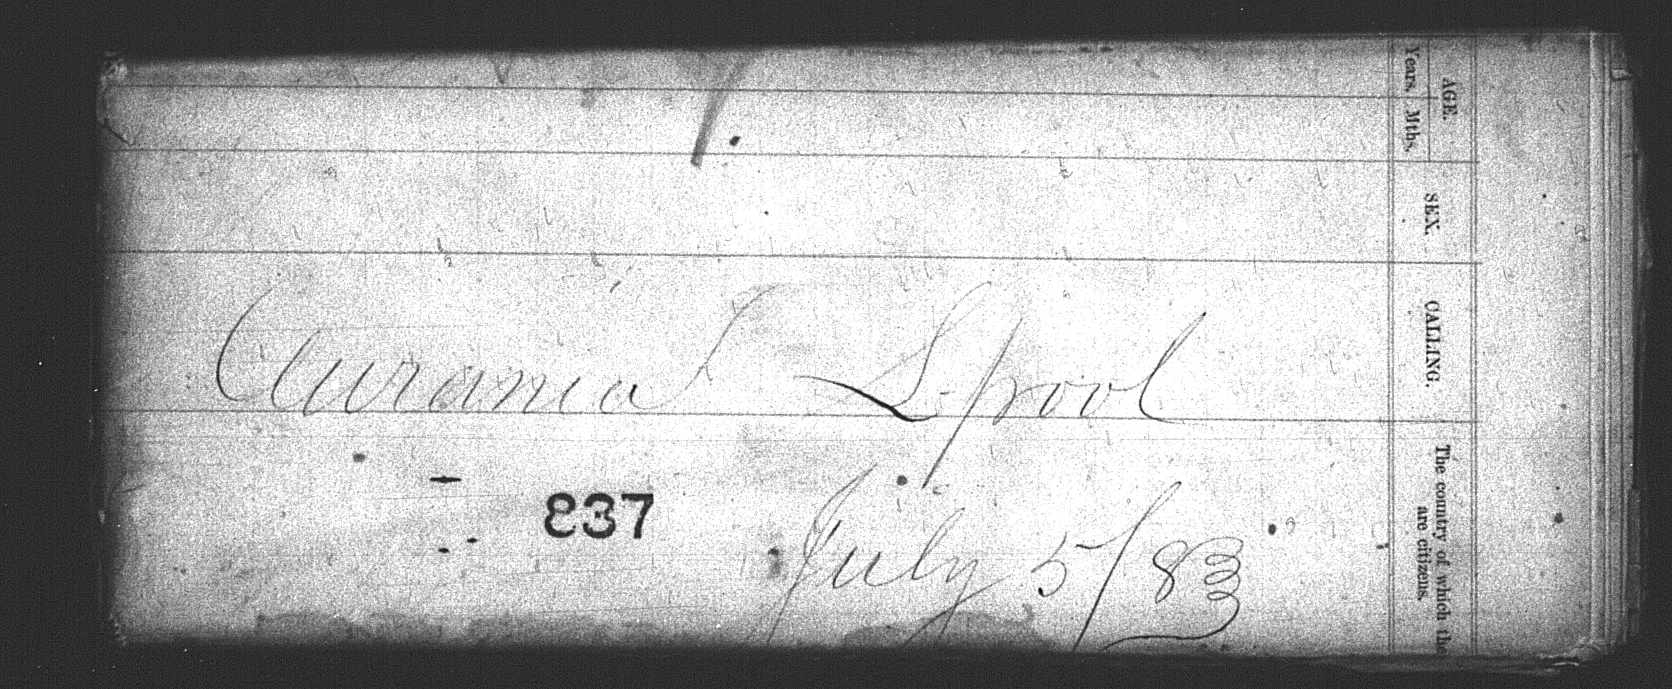 Aurania L-pool
837
July 5/83
AGE.
Years. Mths.
SEX.
CALLING.
The country of which the
are citizens.